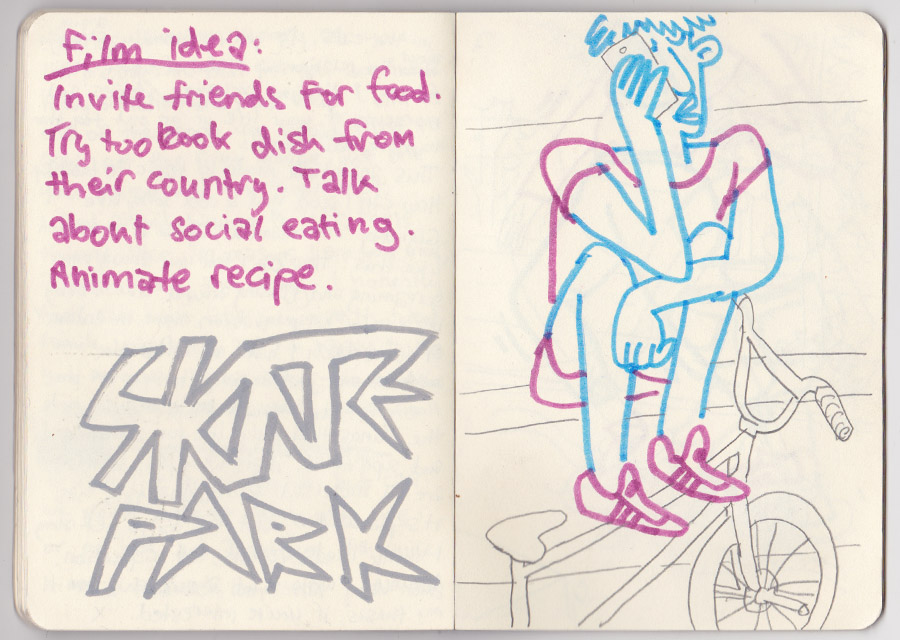 Film idea:
Invite friends for food.
Try too cook dish from
their country. Talk
about social eating.
Animate recipe.
SKATE
PARK